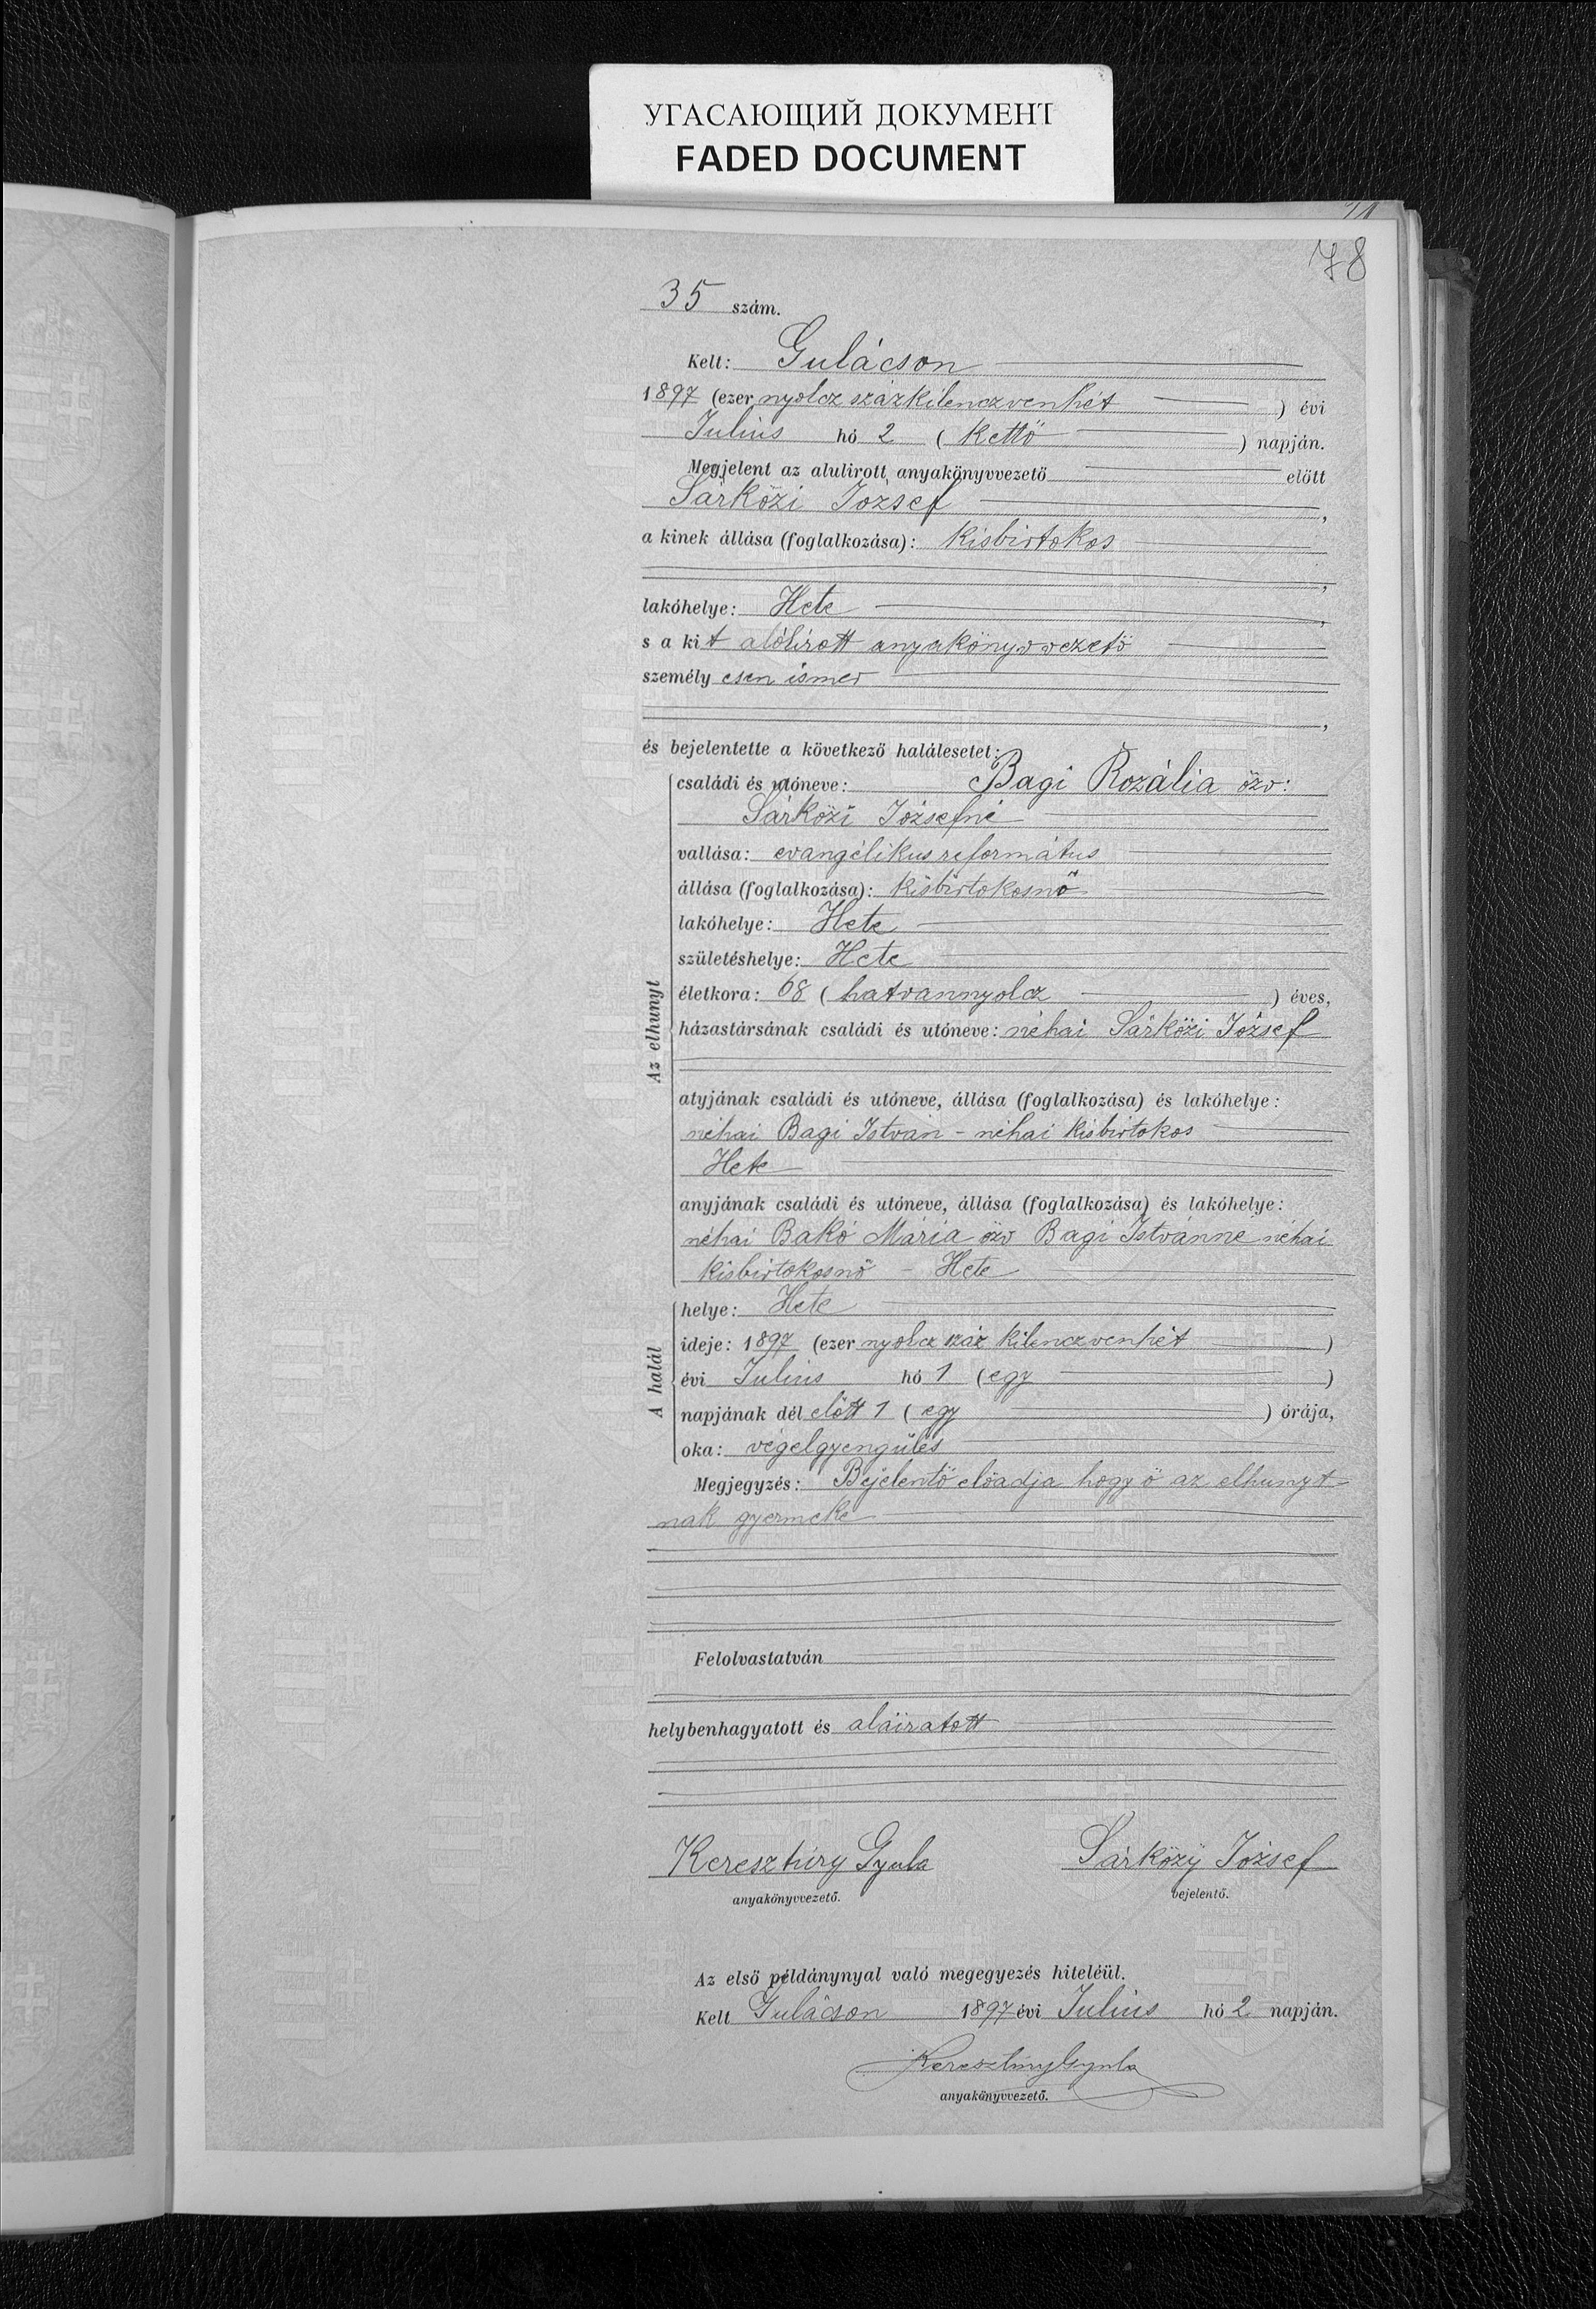 УГАСАЮЩИЙ ДОКУМЕНТ
FADED DOCUMENT
78
35 szám.
Kelt: Gulácson
1897 (ezer nyolcz százkilenczvenhét ) évi
Julius hó 2 ( kettő ) napján.
Megjelent az alulirott anyakönyvvezető előtt
Sárközi József ,
a kinek állása (foglalkozása): kisbirtokos
,
lakóhelye: Hete ,
s a kit alólirott anyakönyvvezető
személy esen ismer
,
és bejelentette a következő halálesetet:
Az elhunyt
családi és utóneve: Bagi Rozália özv:
Sárközi Józsefné
vallása: evangélikus református
állása (foglalkozása): kisbirtokosnő
lakóhelye: Hete
születéshelye: Hete
életkora: 68 ( hatvannyolcz ) éves,
házastársának családi és utóneve: néhai Sárközi József
atyjának családi és utóneve, állása (foglalkozása) és lakóhelye:
néhai Bagi István - néhai kisbirtokos
Hete
anyjának családi és utóneve, állása (foglalkozása) és lakóhelye:
néhai Bakó Mária özv Bagi Istvánné néhai
kisbirtokosnő - Hete
A halál
helye: Hete
ideje: 1897 (ezer nyolcz száz kilenczvenhét )
évi Julius hó 1 ( egy )
napjának dél előtt 1 ( egy ) órája,
oka: végelgyengülés
Megjegyzés: Bejelentő előadja hogy ő az elhunyt=
nak gyermeke
Felolvastatván
helybenhagyatott és aláiratott
Keresztúry Gyula Sárközÿ József
anyakönyvvezető. bejelentő.
Az első példánynyal való megegyezés hiteléül.
Kelt Gulácson 1897 évi Julius hó 2 napján.
Keresztúry Gyula
anyakönyvvezető.